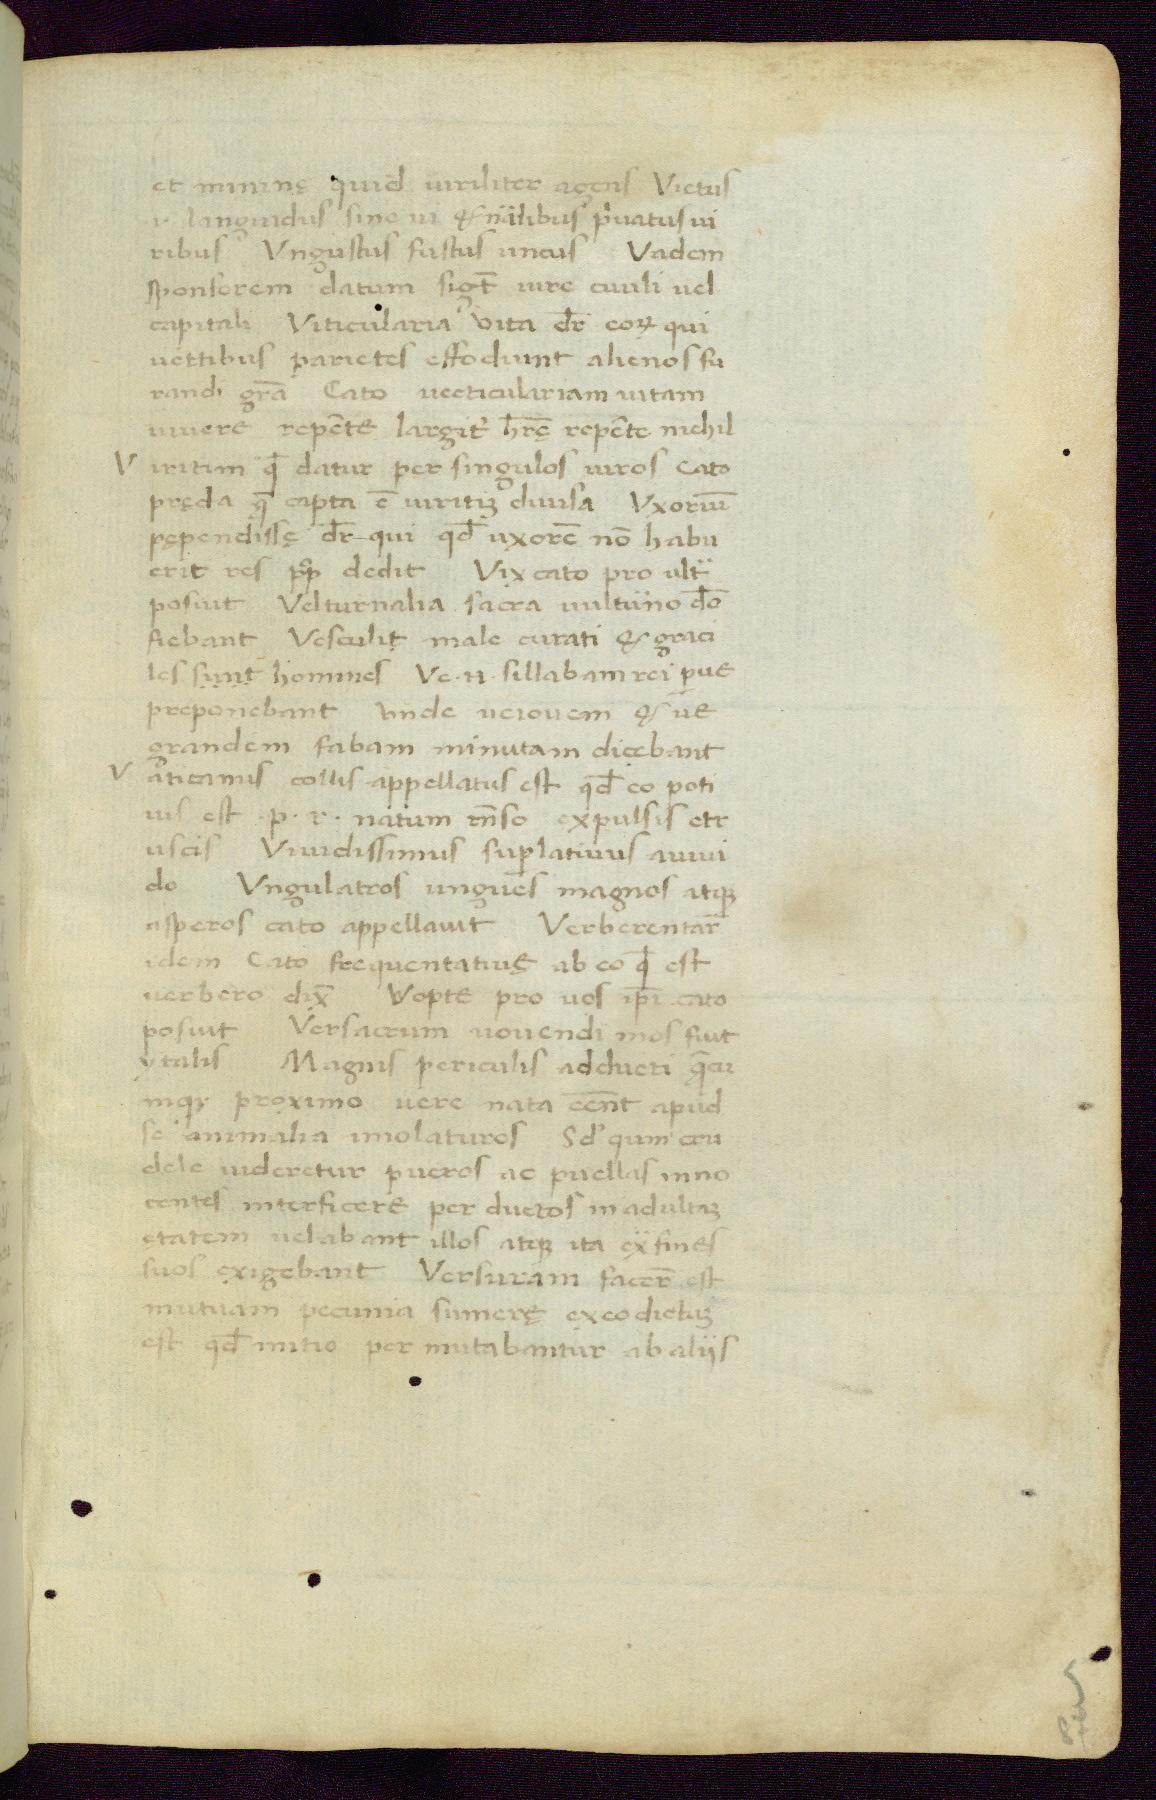 et minimę quid uiriliter agens Vietus
i languidus sine ui & nãlibus pͥuatus ui
ribus Vngustus fustus uncus Vadem
sponsorem datum sigt̄ iure ciuili uel
capitali Viticularia vita dr̄ eoꝝ qui
uettibus parietes effodiunt alienos fu
randi grã Cato uecticulariam uitam
uiuere repẽte largit' hr̄ę repẽte nichil
Viritim qđ datur per singulos uiros Cato
pręda q̄ capta ẽ uiritiȝ diuisa Vxoriũ
pępendissę dr̄ qui qđ uxorẽ nõ habu
erit res pp̊ dedit Vix cato pro ult̃
posuit Velturnalia sacra uultũno đo
fiebant Vesculi male curati & graci
les sunt homines Ve .n. sillabam rei pue
preponebant vnde ueiouem & ũe
grandem fabam minutam dicebant
Vaticanus collis appellatus est qđ eo poti
us est .p. r. natum rñso expulsis etr
uscis Viuidissimus suplatiuus auiui
do Vngulatros ungues magnos atqȝ
asperos cato appellauit Verberentar̃
idem Cato frequentatiuę ab eo qđ est
uerbero dix̃ Vopte pro uos ip̃i cato
posuit Versacrum uouendi mos fuit
ytalis Magnis periculis adducti q̃cu
mqȝ proximo uere nata eẽnt apud
se animalia imolaturos Sd' qum cru
dele uideretur pueros ac puellas inno
centes interficere per ductos in adultaȝ
ętatem uelabant illos atqȝ ita ex̃ fines
suos exigebant Versuram facer̃ est
mutuam pecunia sumerę ex eo dictuȝ
est qđ initio per mutabantur ab aliis